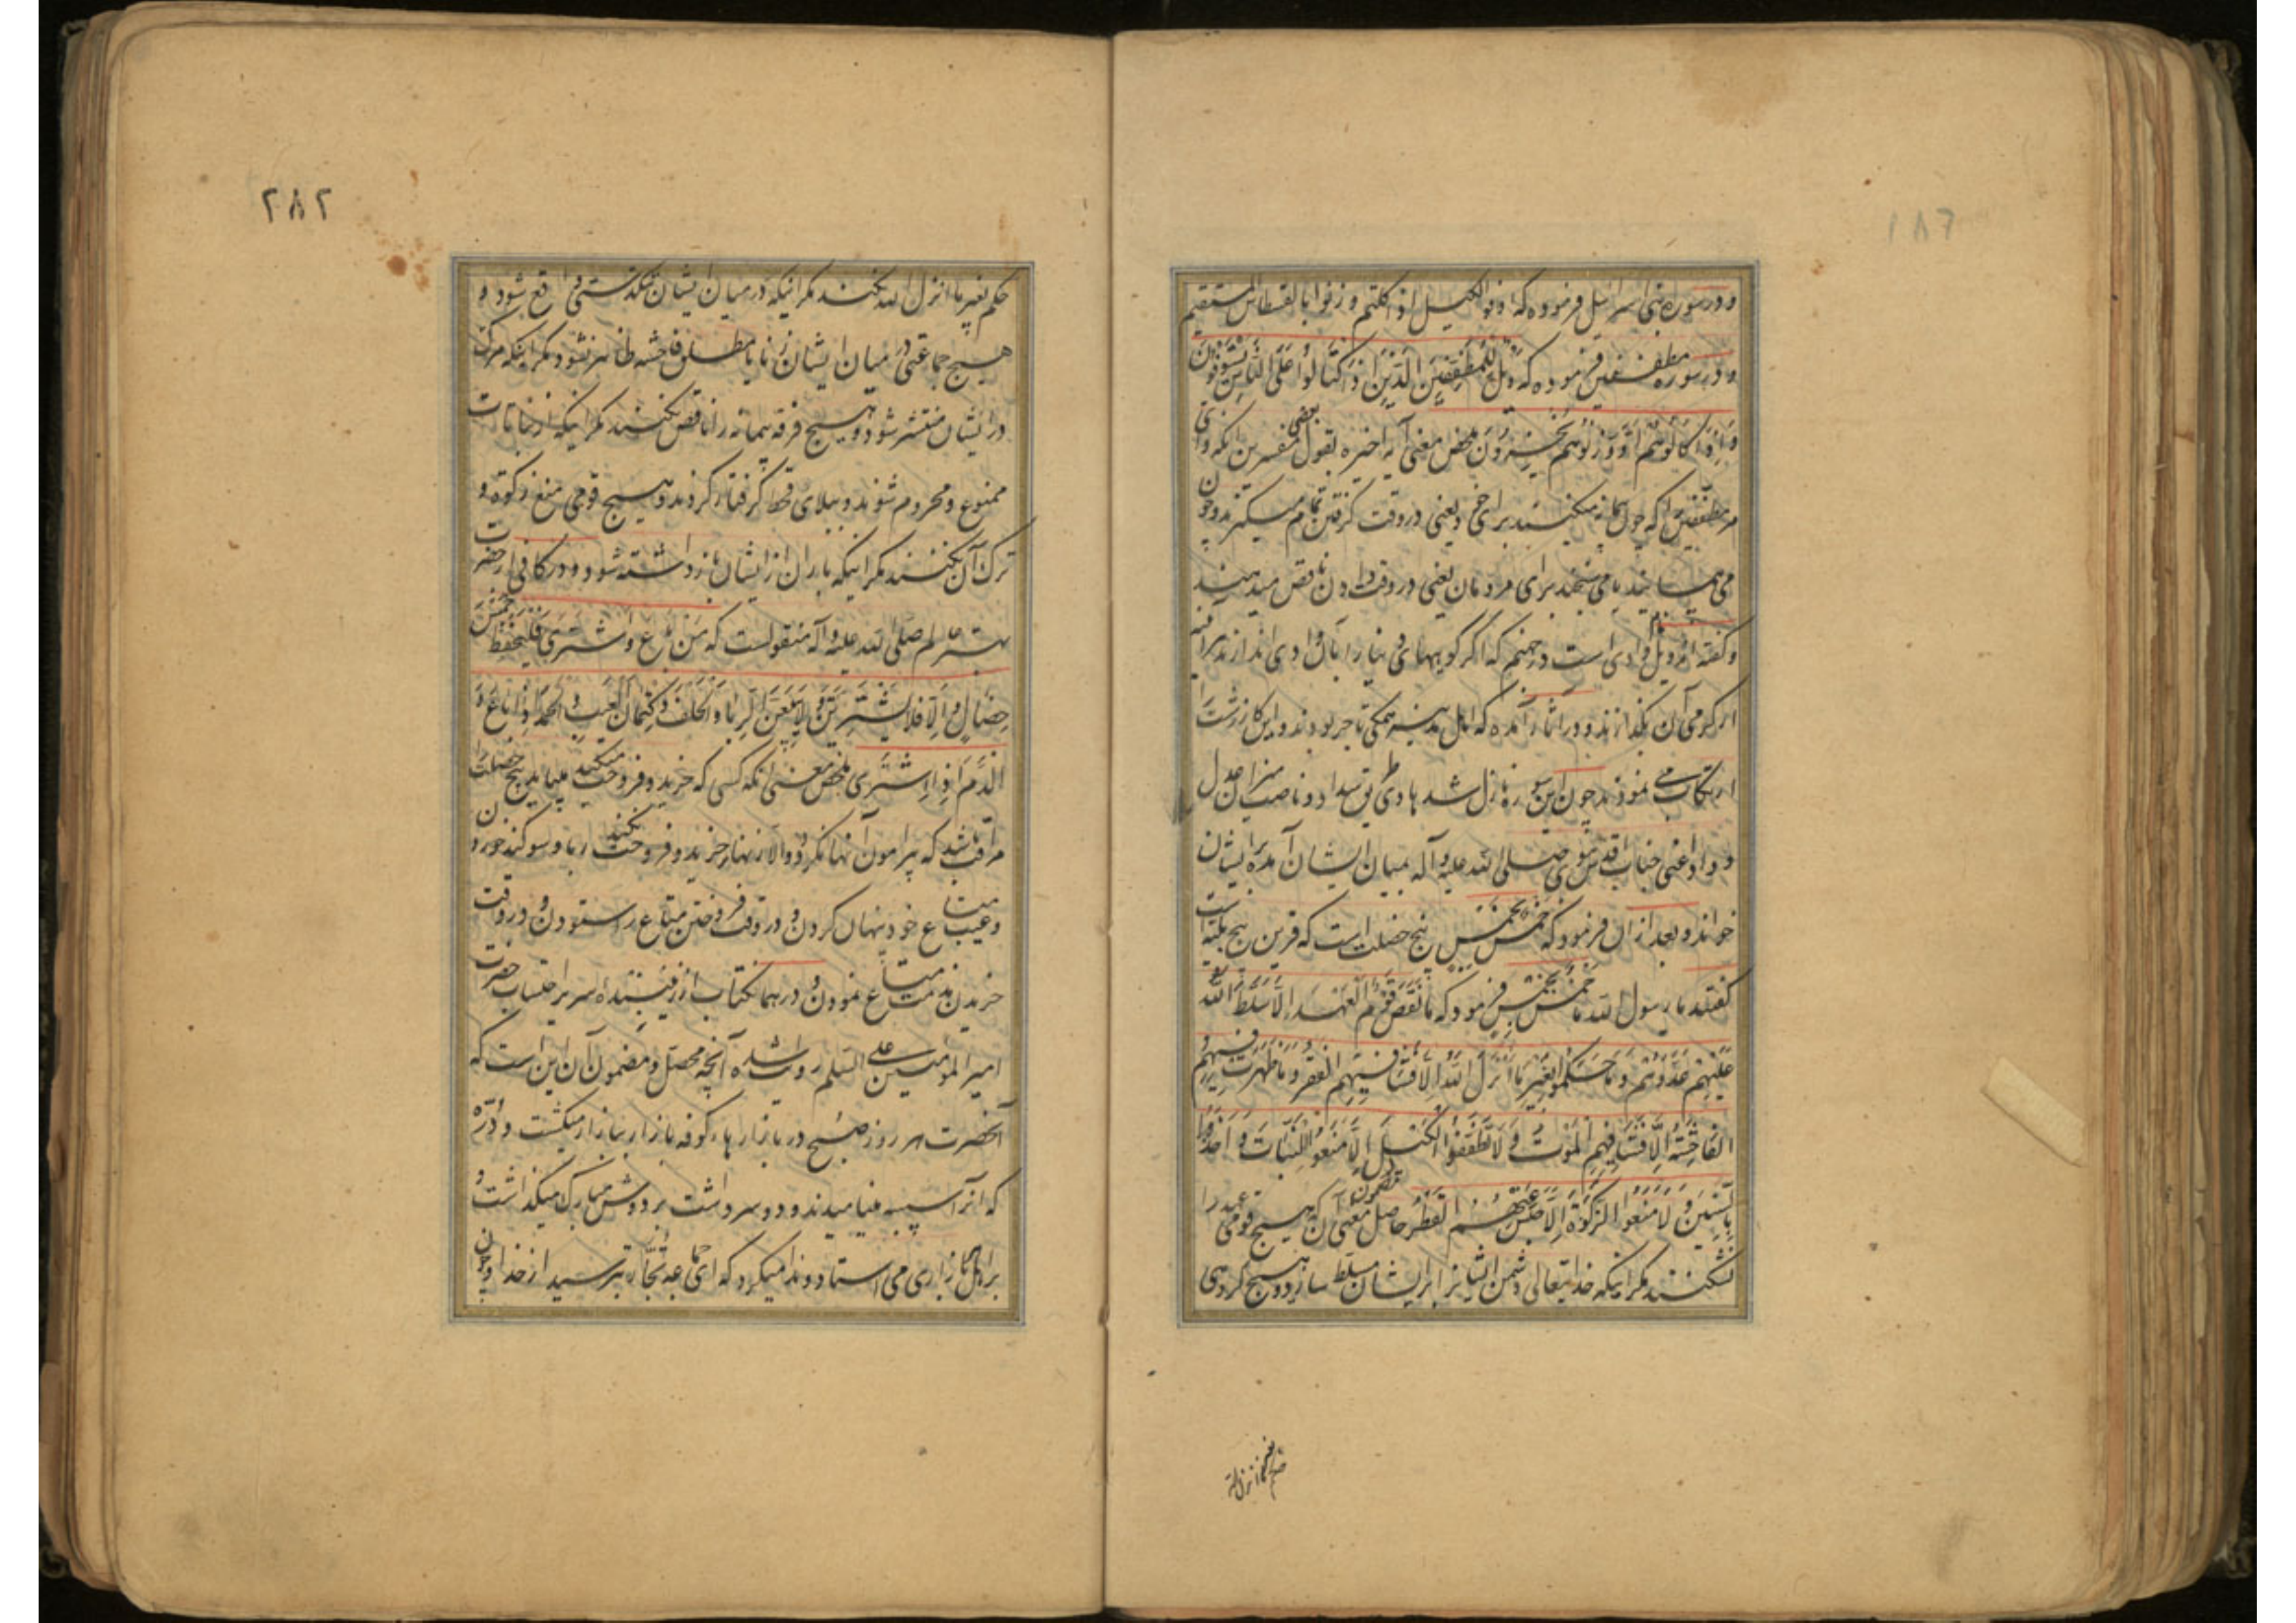 و در سوره بنی اسرائیل فرموده که اوفوا الکیل اذا کلتم و زنوا بالقسطاس المستقیم
و در سوره مطففین فرموده که وَیْلٌ لِلْمُطَفِّفِینَ الَّذِینَ اِذَا کْتَالُوا عَلَی النَّاسِ یَسْتَوْفُونَ
وَاِذَا کَالُوهُمْ اَوْ وَزَنُوهُمْ یُخْسِرُونَ ملخص معنی آیه اخیره بقول بعضی مفسرین آنکه وای
مر مطففین را که چون پیمانه میکنند برای خود یعنی در وقت گرفتن تمام میگیرند و چون
می پیمایند یا می سنجند برای مردمان یعنی در وقت دادن ناقص میدهند
و گفته اند ویل وادی است در جهنم که اگر کوههای دنیا را بآن وادی اندازند هرآینه
از گرمی آن بگدازند و در آثار آمده که اهل مدینه همگی تاجر بودند و این کار زشت را
ارتکاب می نمودند چون این سوره نازل شد هادی طریق سداد و ناصب میزان عدل
و داد اعنی جناب اقدس نبوی صلی الله علیه و آله بمیان ایشان آمده برایشان
خواند و بعد از آن فرمود که خمس بخمس پنج خصلت است که قرین پنج بلیه است
گفتند یا رسول الله ما خمس بخمس فرمود که ما نقض قوم العهد الا سلط الله
علیهم عدوهم و ما حکموا بغیر ما انزل الله الا فشا فیهم الفقر و ما ظهرت فیهم
الفاحشة الا فشا فیهم الموت و لا طففوا الکیل الا منعوا النبات و اخذوا
بالسنین و لا منعوا الزکوة الا حبس عنهم القطر حاصل مضمون معنی آن که هیچ قومی عهد را
نشکنند مگر اینکه خدایتعالی دشمن ایشانرا بر ایشان مسلط سازد و هیچ گروهی
حکم بغیر ما انزل الله
۲۸۲
حکم بغیر ما انزل الله نکنند مگر اینکه در میان ایشان تنگدستی واقع شود و
هیچ جماعتی در میان ایشان زنا یا مطلق فاحشه ظاهر نشود مگر اینکه مرگ
در ایشان منتشر شود و هیچ فرقه پیمانه را ناقص نکنند مگر اینکه از نباتات
ممنوع و محروم شوند و ببلای قحط گرفتار گردند و هیچ قومی منع زکوة و
ترک آن نکنند مگر اینکه باران از ایشان بازداشته شود و در کافی از حضرت
صلی الله علیه و آله منقولست که من باع و اشتری فلیحفظ خمس
خصال و الا فلا یشترین و لا یبیعن الربا و الحلف و کتمان العیب و الحمد اذا باع و
الذم اذا اشتری ملخص معنی آنکه کسی که خرید و فروخت میکند میباید پنج خصلت
مراقب باشد که پیرامون آنها نگردد و الا زنهار خرید و فروخت نکند ربا و سوگند خوردن
و عیب متاع خود پنهان کردن و در وقت فروختن متاع را ستودن و در وقت
خریدن مذمت متاع نمودن و در همان کتاب از حضرت
امیر المؤمنین علیه السلم روایت شده آنچه محصل و مضمون آن این است که
آنحضرت هر روز صبح در بازارها کوفه بازار ببازار میگشت و دره
که آنرا سبیبه مینامیدند و دو سر داشت بر دوش مبارک میگذاشت و
بر اهل هر بازاری می استاد و ندا میکرد که ای جماعه تجار بترسید از خدا و چون